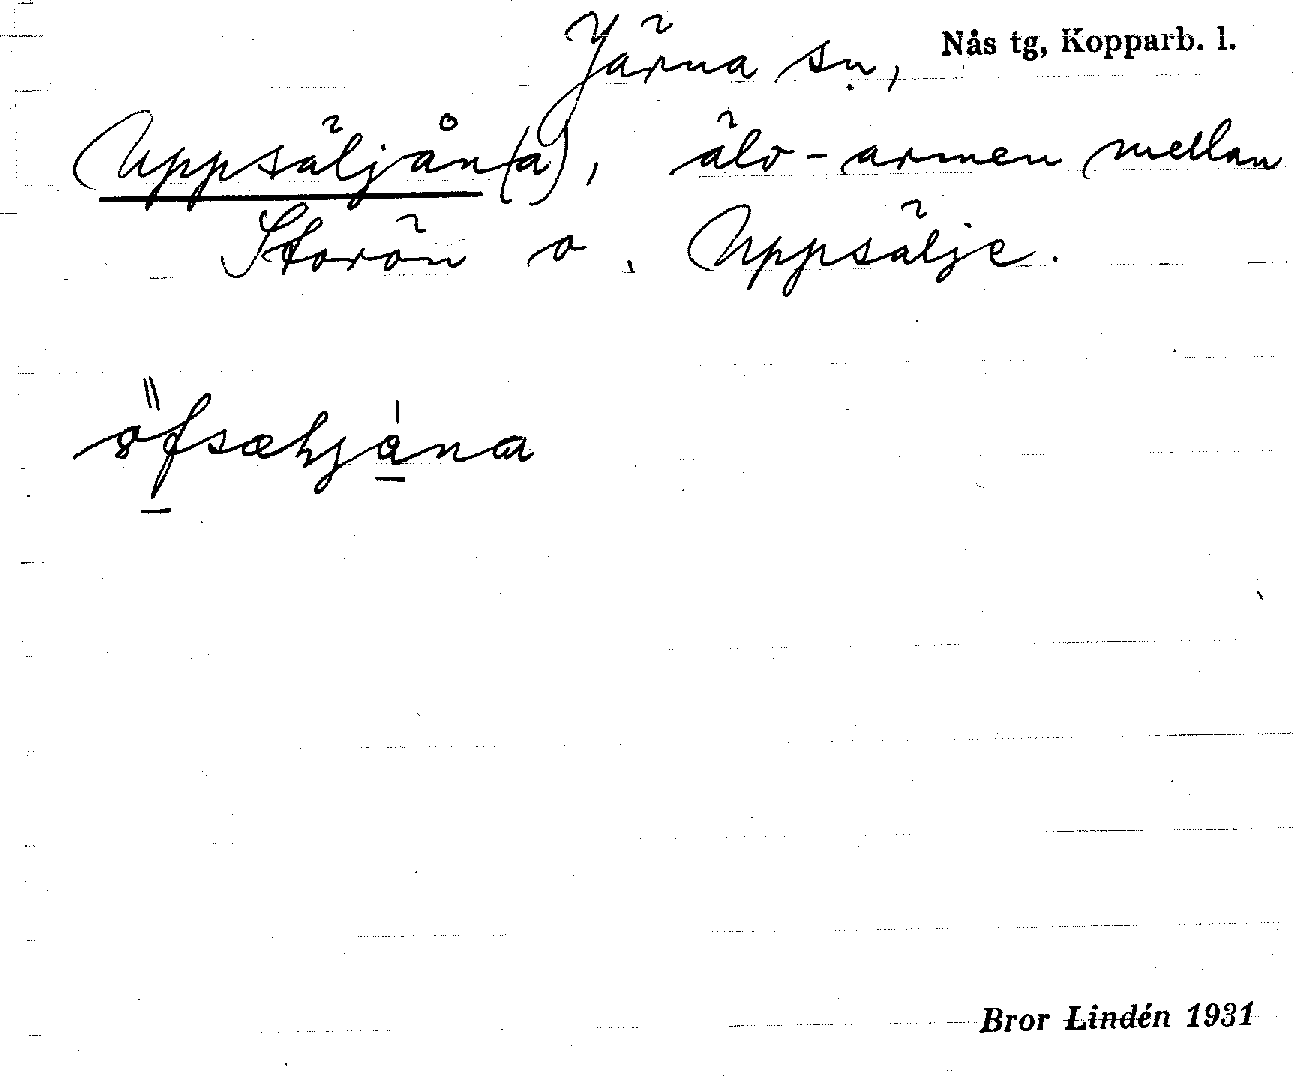 Järna sn, Nås tg, Kopparb. l.
Uppsäljån(a), älv-armen mellan
Storön o. Uppsälje.
Bror Lindén 1931